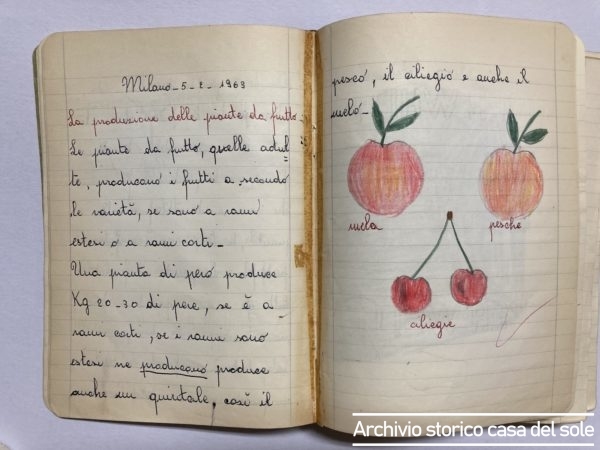 Milano - 5 - 2 - 1963
La produzione delle piante da frutto.
Le piante da frutto, quelle adul
te, producono i frutti a secondo
le varietà, se sono a rami
estesi o a rami corti -
Una pianta di pero produce
Kg 20-30 di pere, se è a
rami corti, se i rami sono
estesi ne producono produce
anche un quintale, così il
pesco, il ciliegio e anche il
melo -
mela
pesche
ciliegie
Archivio storico casa del sole